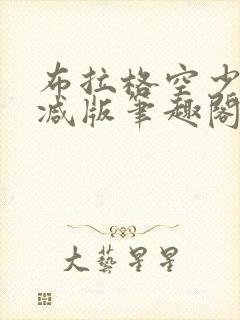 布拉格空少
减版笔趣阁
大艺星星